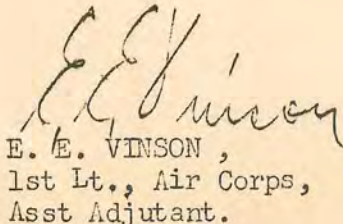 E E Vinson
E. E. VINSON ,
1st Lt., Air Corps,
Asst Adjutant.